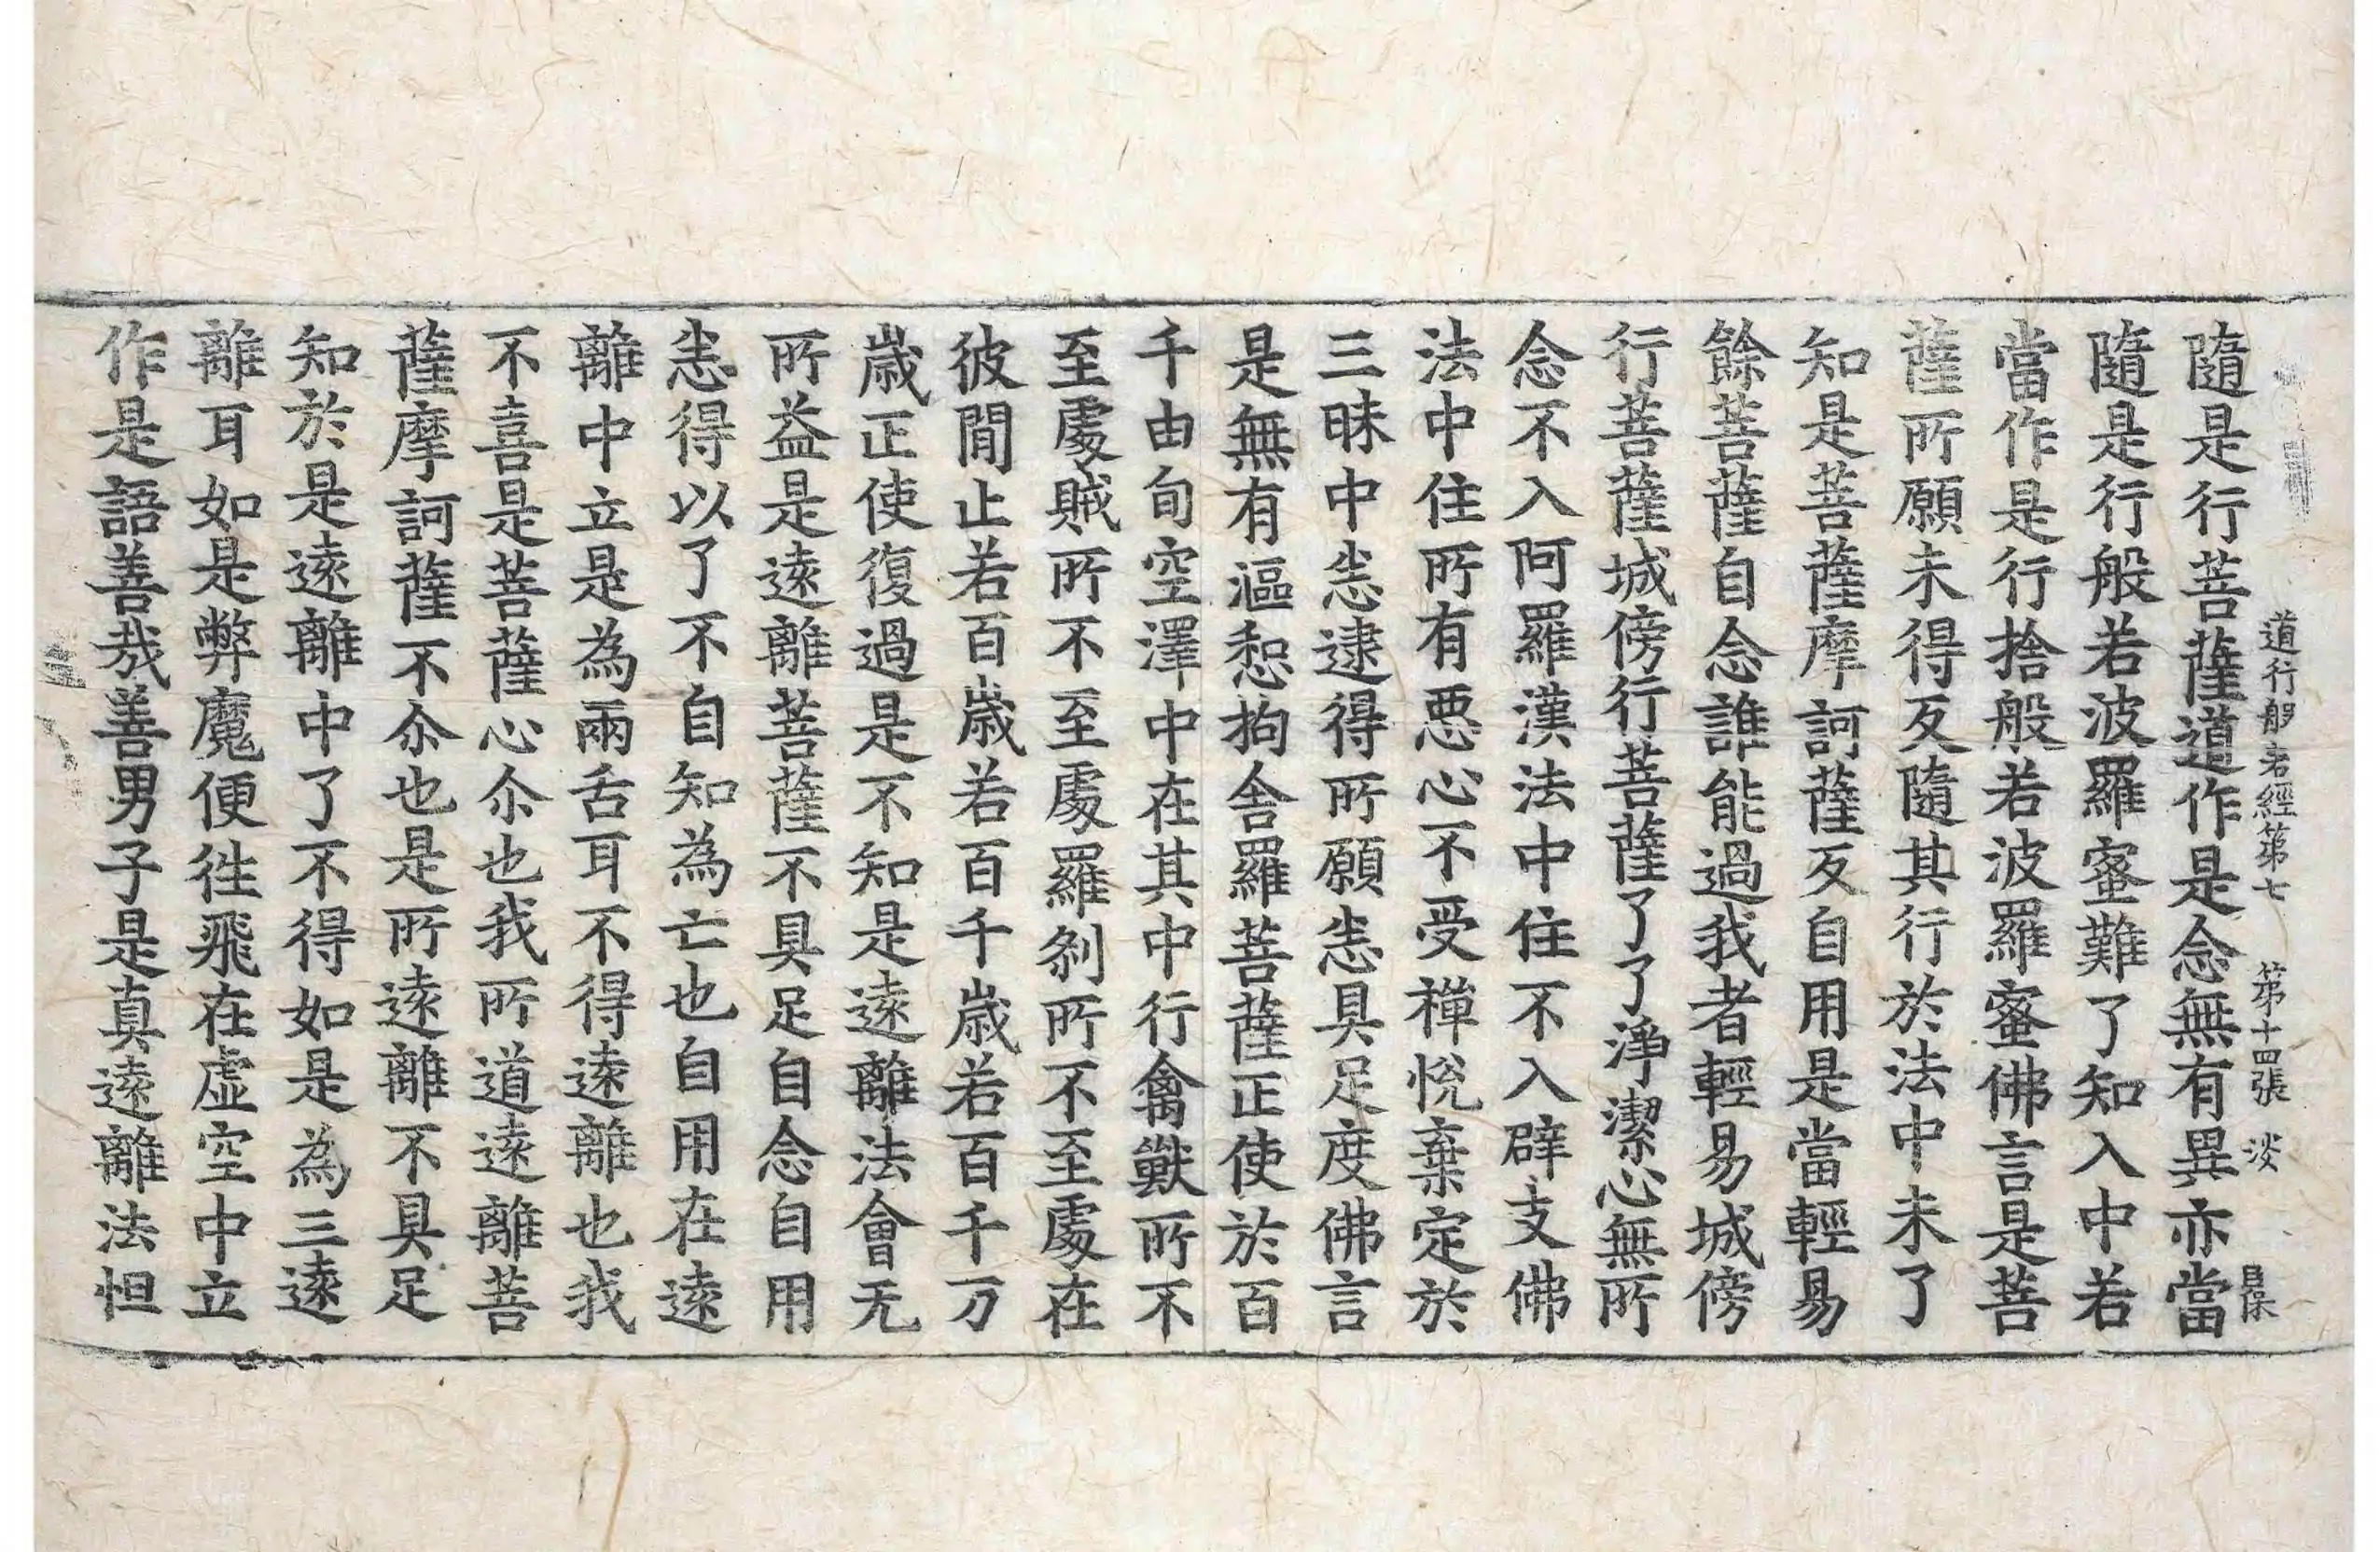 道行般若經第七　第十四張　淡
隨是行菩薩道作是念無有異亦當
隨是行般若波羅蜜難了知入中若
當作是行捨般若波羅蜜佛言是菩
薩所願未得反隨其行於法中未了
知是菩薩摩訶薩反自用是當輕易
餘菩薩自念誰能過我者輕易城傍
行菩薩城傍行菩薩了了淨潔心無所
念不入阿羅漢法中住不入辟支佛
法中住所有悪心不受禪悅棄定於
三昧中恙逮得所願恙具足度佛言
是無有漚惒拘舍羅菩薩正使於百
千由旬空澤中在其中行禽獸所不
至處賊所不至處羅剎所不至處在
彼閒止若百歲若百千歲若百千万
歲正使復過是不知是遠離法會无
所益是遠離菩薩不具足自念自用
恙得以了不自知為亡也自用在遠
離中立是為兩舌耳不得遠離也我
不喜是菩薩心尒也我所道遠離菩
薩摩訶薩不尒也是所遠離不具足
知於是遠離中了不得如是為三遠
離耳如是弊魔便徃飛在虛空中立
作是語善哉善男子是真遠離法怛